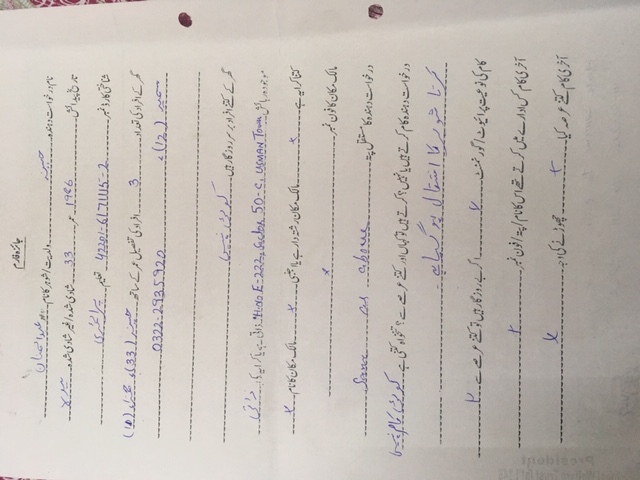 جائزہ فارم
نام درخواست دہندہ حسینہ ولدیت/شوہر کا نام عبدالمنان
تاریخ پیدائش 1986 عمر 33 شادی شدہ/غیر شادی شدہ بیوہ
شناختی کارڈ نمبر 42201-6171115-2 تعلیم پرائمری
گھر کے افراد کی تعداد 3 افراد کی تفصیل عمر کے ساتھ حسینہ (33)،
سمیر (12)، 0322-2935920
گھر کے کتنے افراد برسر روزگار ہیں کوئی نہیں
موجودہ رہائش H.no E-222, Sector 50-C, USMAN Town ذاتی ہے یا کرایہ کی: ذاتی
کتنا کرایہ ہے x مالک مکان رشتہ دار ہے یا اجنبی x مالک مکان کا نام x
مالک مکان کا فون نمبر x
درخواست دہندہ کا مستقل پتہ Same as above
درخواست دہندہ کام کرتے ہیں یا نہیں؟ کرتے ہیں تو کہاں اور کتنے عرصے سے؟ تنخواہ کتنی ہے کوئی کام نہیں
کرتا شوہر کا انتقال ہو گیا ہے۔
کام کی نوعیت پرائیوٹ/گورنمنٹ x اگر بے روزگار ہیں تو کتنے عرصے سے x
آخری کام کس ادارے میں کرتے تھے اس کا نام/پتہ/فون نمبر x
آخری کام کتنے عرصہ کیا x چھوڑنے کی وجہ x